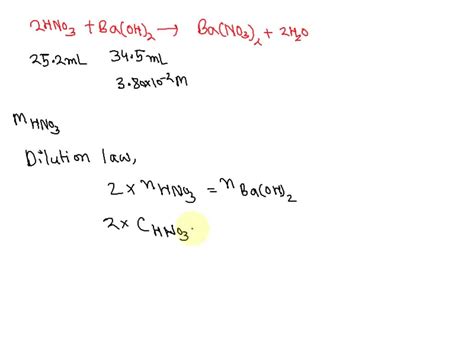 2HNO₃ + Ba(OH)₂ → Ba(NO₃)₂ + 2H₂O
25.2mL 34.5mL
3.80x10⁻²M
M HNO₃
Dilution law,
2 × n HNO₃ = n Ba(OH)₂
2 × C HNO₃